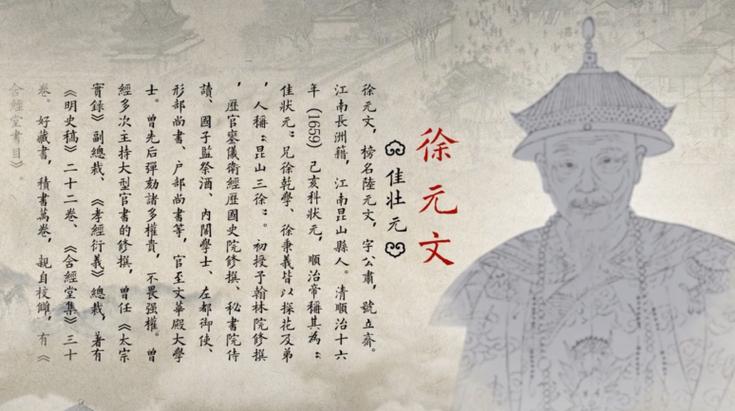 徐元文
佳壯元
徐元文，榜名陸元文，字公肅，號立齋。
江南長洲籍，江南昆山縣人。清順治十六
年(1659)己亥科狀元，順治帝稱其為“
佳狀元”兄徐乾學、徐秉義皆以探花及弟
，人稱“昆山三徐”。初授予翰林院修撰
，歷官鑾儀衛經歷國史院修撰、秘書院侍
讀、國子監祭酒、內閣學士、左都御使、
形部尚書、户部尚書等，官至文華殿大學
士。曾先后彈劾諸多權貴，不畏强權。曾
經多次主持大型官書的修撰，曾任《太宗
實錄》副總裁、《孝經衍義》總裁，著有
《明史稿》二十二卷、《含經堂集》三十
卷。好藏書，積書萬卷，親自校讎，有《
含經堂書目》